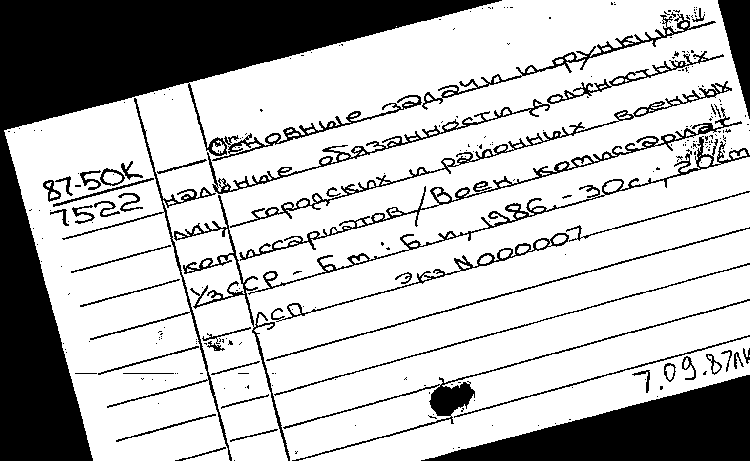 87-50К
7522
Основные задачи и функцио-
нальные обязанности должностных
лиц городских и районных военных
комиссариатов / Воен. комиссариат
УзССР. - Б.м.: Б.и., 1986. - 30с.; 20см
ДСП. Экз N000007
7.09.87ЛК